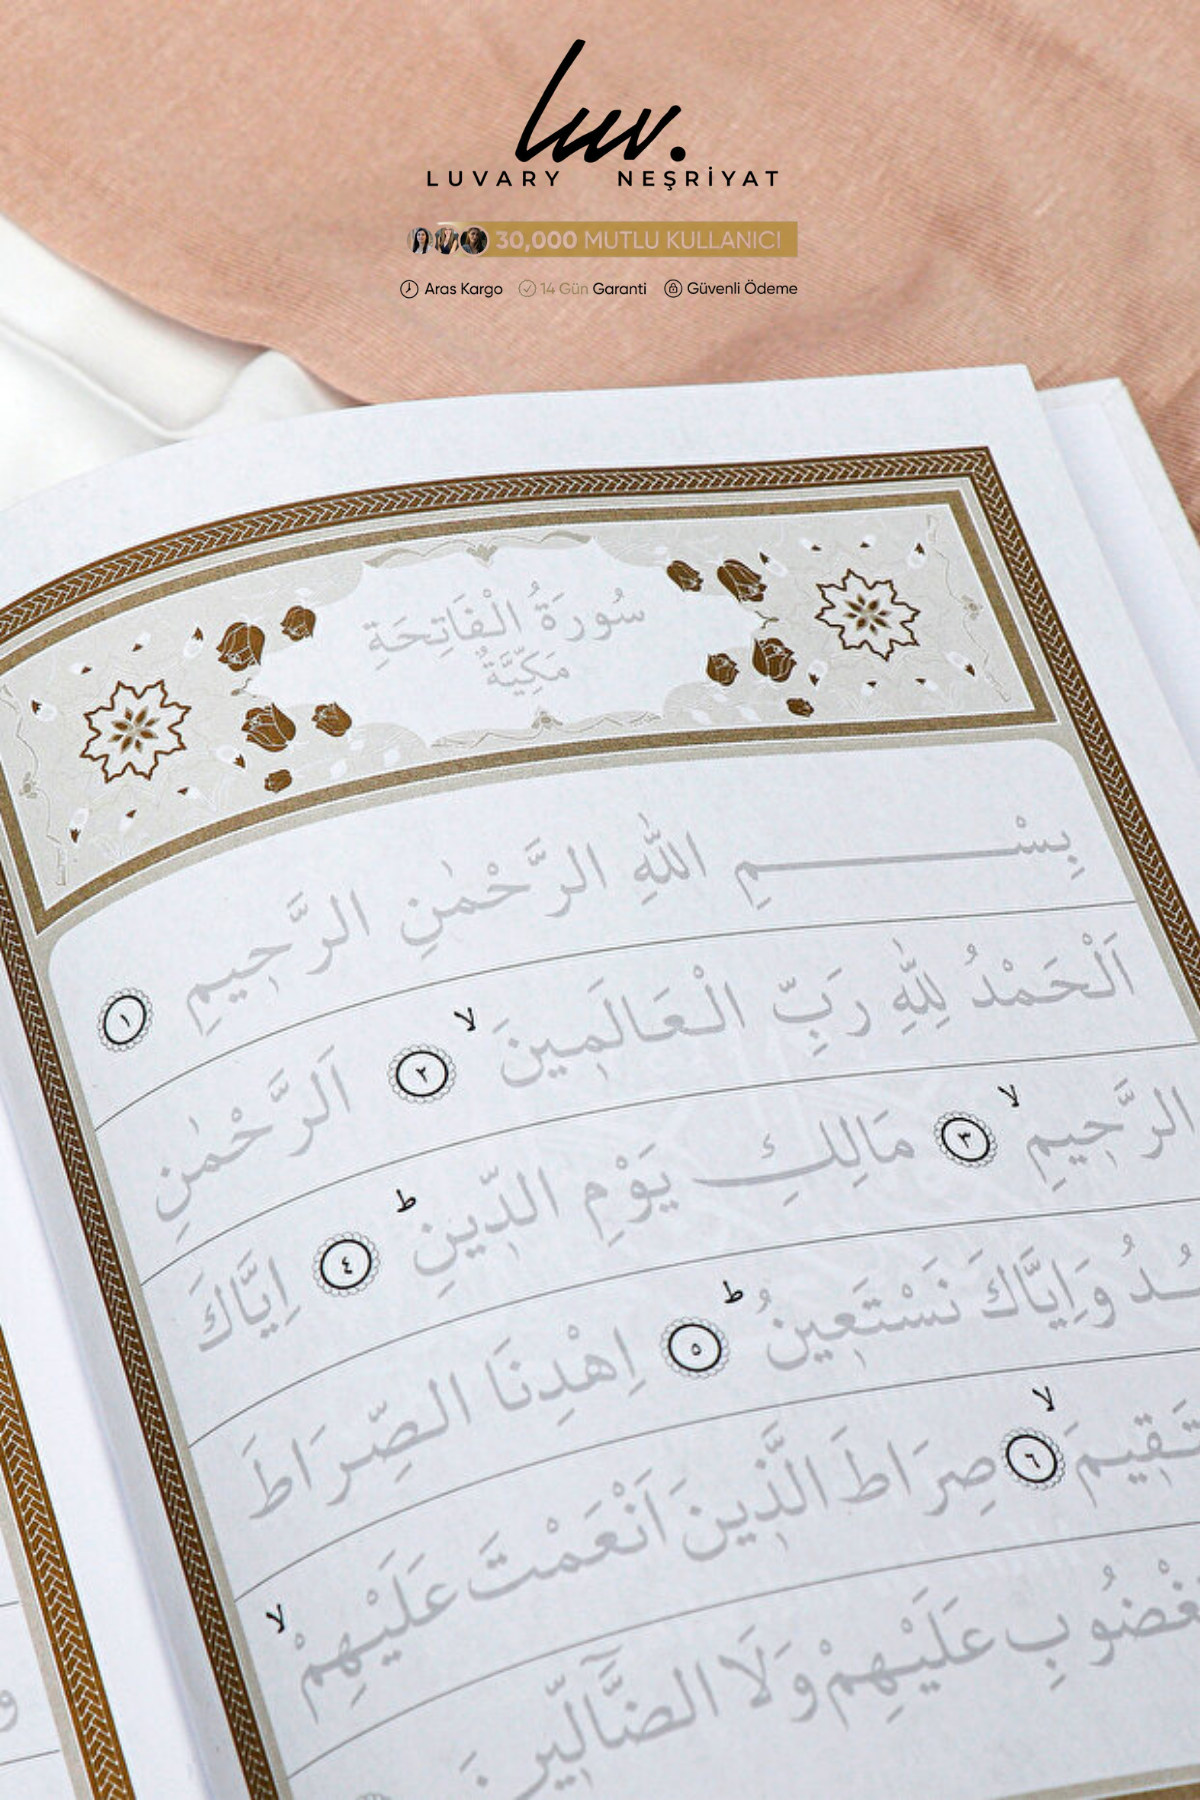 luv.
LUVARY NEŞRİYAT
30,000 MUTLU KULLANICI
Aras Kargo 14 Gün Garanti Güvenli Ödeme
سُورَةُ الْفَاتِحَةِ
مَكِّيَّةٌ
بِسْمِ اللّٰهِ الرَّحْمٰنِ الرَّحِيمِ ١
اَلْحَمْدُ لِلّٰهِ رَبِّ الْعَالَمِينَ لا ٢ اَلرَّحْمٰنِ
الرَّحِيمِ لا ٣ مَالِكِ يَوْمِ الدِّينِ ط ٤ اِيَّاكَ
ـدُ وَاِيَّاكَ نَسْتَعِينُ ط ٥ اِهْدِنَا الصِّرَاطَ
ـتَقِيمَ لا ٦ صِرَاطَ الَّذِينَ اَنْعَمْتَ عَلَيْهِمْ لا
ـغْضُوبِ عَلَيْهِمْ وَلَا الضَّٓالِّينَ